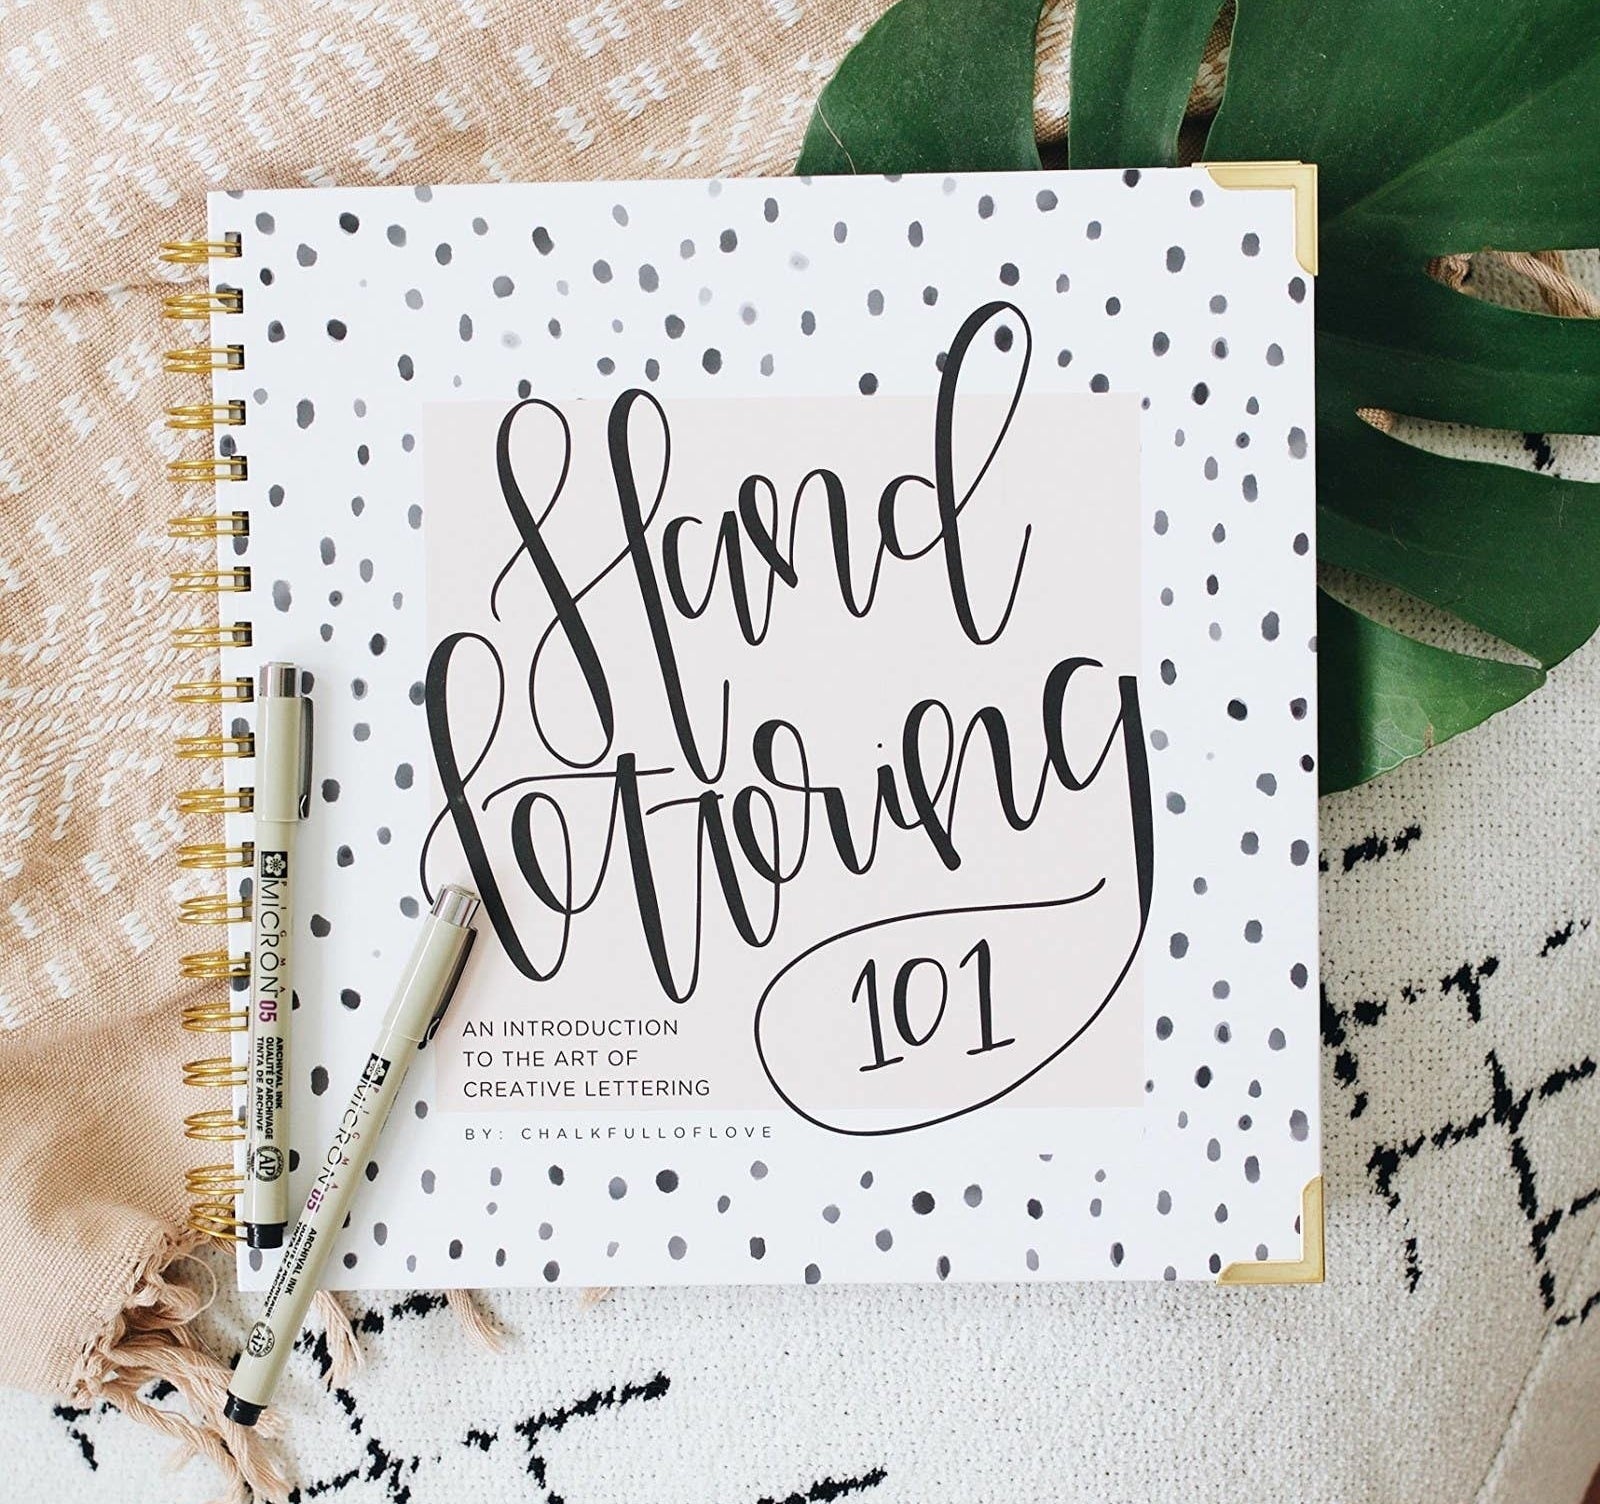 Hand
lettering
101
AN INTRODUCTION
TO THE ART OF
CREATIVE LETTERING
BY: CHALKFULLOFLOVE
PIGMA
MICRON 05
ARCHIVAL INK
QUALITÉ D'ARCHIVAGE
TINTA DE ARCHIVE
AP
PIGMA
MICRON 05
ARCHIVAL INK
QUALITÉ D'ARCHIVAGE
TINTA DE ARCHIVE
AP